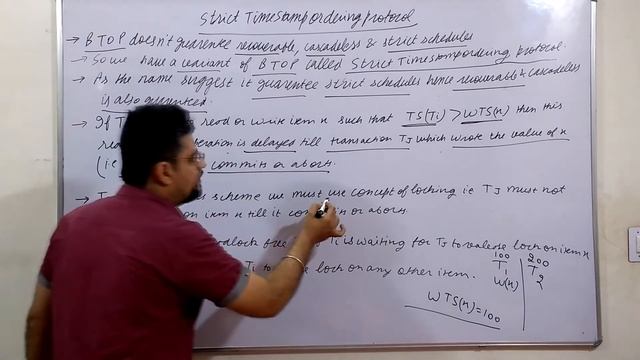 Strict Timestamp ordering protocol
→ BTOP doesn't guarentee recoverable, cascadeless & strict schedules
→ So we have a variant of BTOP called Strict Timestamp ordering protocol.
→ As the name suggest it guarentee strict schedules hence recoverable & cascadeless
is also guaranteed.
→ If T read or write item x such that TS(Ti) > WTS(x) then this
is delayed till transaction TJ which wrote the value of x
(i.e commits or aborts.
→ scheme we must use concept of locking i.e TJ must not
on item x till it or aborts.
is waiting for TJ to release lock on item x
lock on any other item.
100 200
T1 T2
W(x)
WTS(x)=100